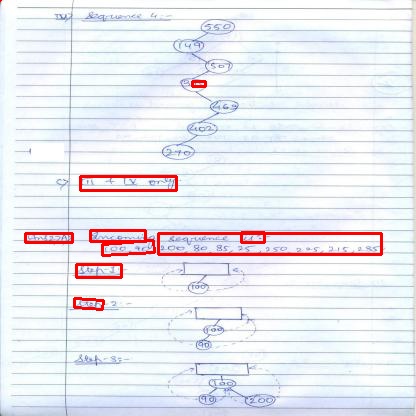 iv) Sequence 4:-
550
149
507
469
402
270
c) ii + iv only
Incoming sequence is:-
100, 90, 200, 80, 85, 25, 250, 225, 215, 235
Step-1:-
100
Step-2:-
100
90
Step-3:-
100
90 200